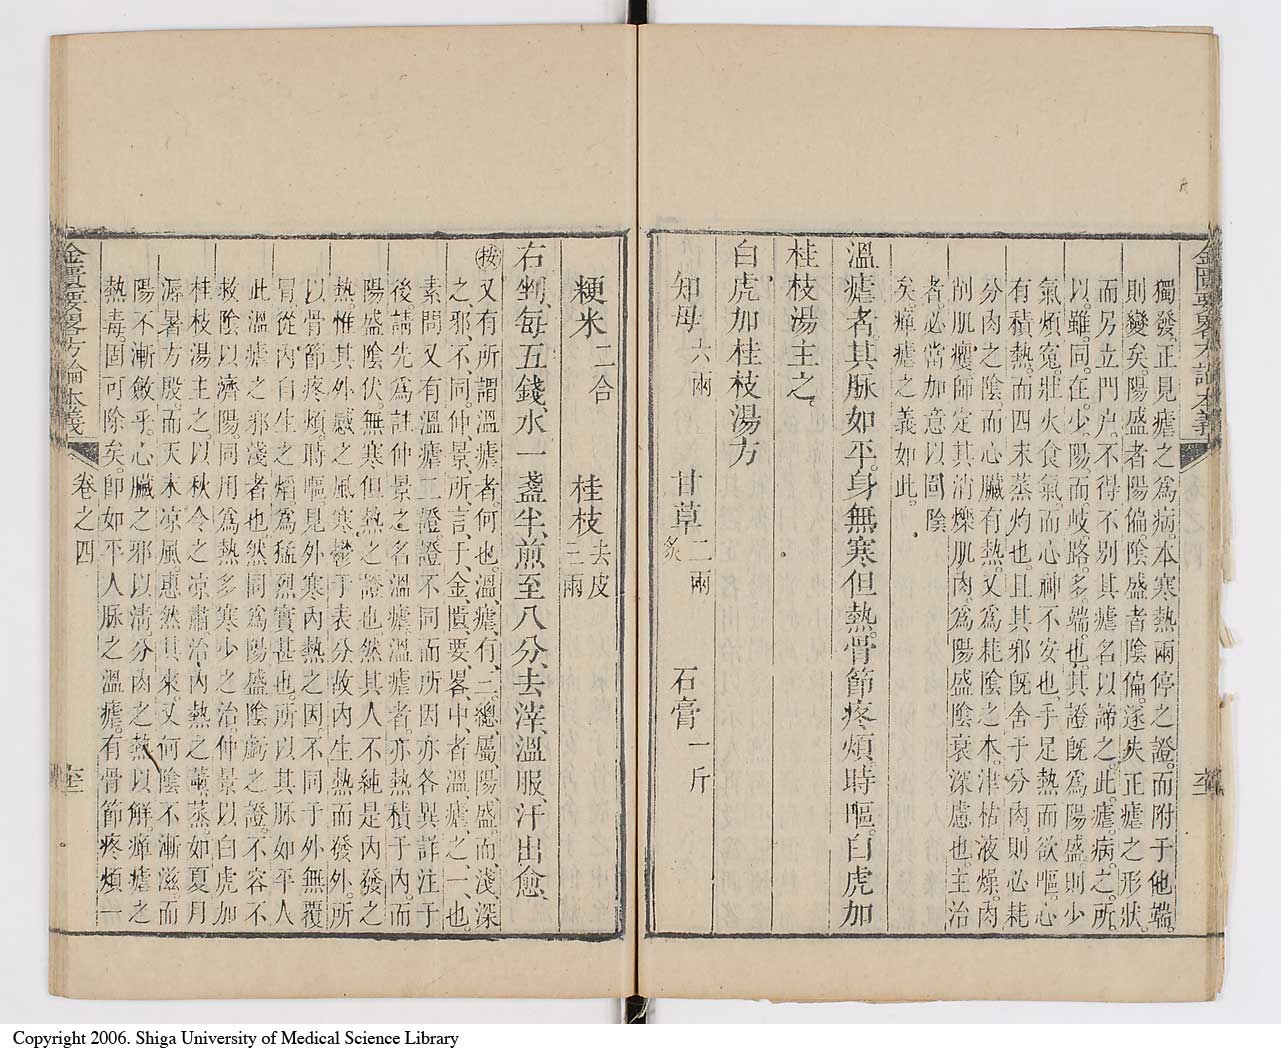 獨發。正見瘧之爲病。本寒熱兩停之證。而附于他端。
則變矣。陽盛者陽偏。陰盛者陰偏。遂失正瘧之形狀。
而另立門戶。不得不別其瘧名以諦之。此。瘧。病。之。所。
以。雖。同。在。少。陽。而。岐。路。多。端。也。其證旣爲陽盛。則少
氣煩冤。壯火食氣。而心神不安也。手足熱而欲嘔。心
有積熱。而四末蒸灼也。且其邪旣舍于分肉。則必耗
分肉之陰。而心臟有熱。又爲耗陰之本。津枯液燥。肉
削肌癯。師定其消爍肌肉。爲陽盛陰衰深慮也。主治
者。必當加意以固陰
矣。癉瘧之義如此。
溫瘧者。其脉如平。身無寒但熱。骨節疼煩。時嘔。白虎加
桂枝湯主之。
白虎加桂枝湯方
知母六兩
甘草二兩炙
石膏一斤
金匱要畧方論本義
粳米二合
桂枝去皮三兩
右剉。每五錢。水一盞半。煎至八分。去滓。溫服。汗出愈。
按又有所謂溫瘧者。何也。溫。瘧。有。二。總。屬。陽。盛。而。淺。深
之。邪。不。同。仲。景。所。言。于。金。匱。要。畧。中。者。溫。瘧。之。一。也。
素問又有溫瘧二證。證不同而所因亦各異。詳注于
後。請先爲註仲景之名溫瘧。溫瘧者。亦熱積于內。而
陽盛陰伏。無寒但熱之證也。然其人不純是內發之
熱。惟其外感之風寒。鬱于表分。故內生熱而發外。所
以骨節疼煩。時嘔。見外寒內熱之因。不同于外無覆
冒。從內自生之熖。爲猛烈實甚也。所以其脉如平人
此溫瘧之邪淺者也。然同爲陽盛陰虧之證。不容不
救陰以濟陽。同用爲熱多寒少之治。仲景以白虎加
桂枝湯主之。以秋令之凉肅。治內熱之薰蒸。如夏月
溽暑方殷。而天末凉風。惠然其來。又何陰不漸滋。而
陽不漸斂乎。心臟之邪以淸。分肉之熱以解。癉瘧之
熱毒。固可除矣。卽如平人脉之溫瘧。有骨節疼煩一
金匱要畧方論本義
卷之四